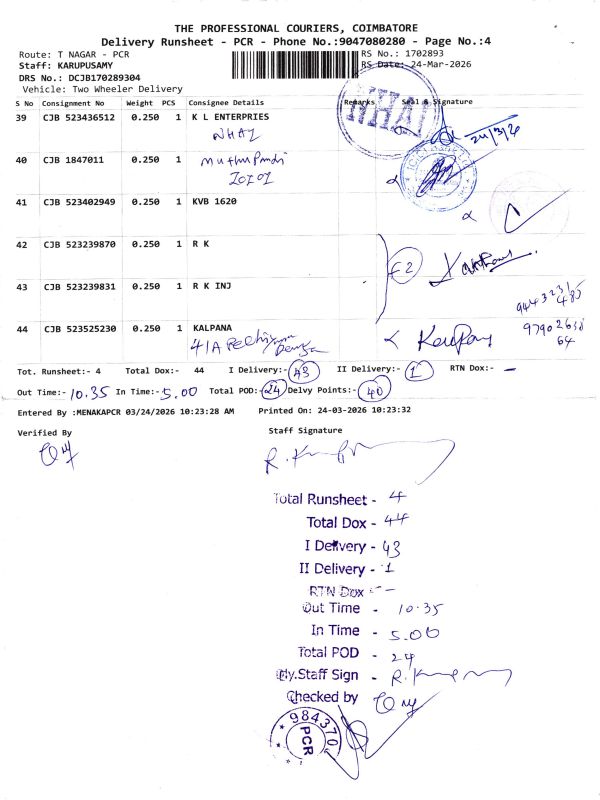 THE PROFESSIONAL COURIERS, COIMBATORE
Delivery Runsheet - PCR - Phone No.:9047080280 - Page No.:4
Route: T NAGAR - PCR
RS No.: 1702893
Staff: KARUPUSAMY
RS Date: 24-Mar-2026
DRS No.: DCJB170289304
Vehicle: Two Wheeler Delivery
S No Consignment No Weight PCS Consignee Details Remarks Seal & Signature
39 CJB 523436512 0.250 1 K L ENTERPRIES
NHAI
NHAI
24/3/26
40 CJB 1847011 0.250 1
41 CJB 523402949 0.250 1 KVB 1620
42 CJB 523239870 0.250 1 R K
43 CJB 523239831 0.250 1 R K INJ
44 CJB 523525230 0.250 1 KALPANA
41A
Tot. Runsheet:- 4 Total Dox:- 44 I Delivery:- 43 II Delivery:- 1 RTN Dox:- -
Out Time:- 10.35 In Time:- 5.00 Total POD:- 24 Delvy Points:- 40
Entered By :MENAKAPCR 03/24/2026 10:23:28 AM Printed On: 24-03-2026 10:23:32
Verified By
Staff Signature
Total Runsheet - 4
Total Dox - 44
I Delivery - 43
II Delivery - 1
RTN Dox - -
Out Time - 10.35
In Time - 5.00
Total POD - 24
Dly.Staff Sign -
Checked by
984370
PCR